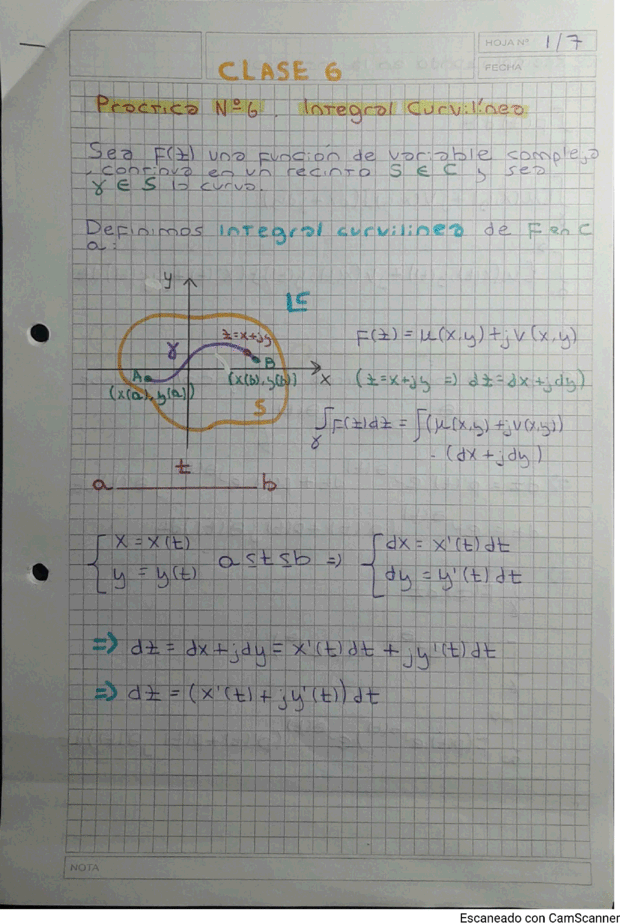 HOJA Nº 1/7
FECHA
CLASE 6
Practica Nº6. Integral Curvilínea
Sea F(z) una función de variable compleja
, continua en un recinto S ∈ C y sea
γ ∈ S la curva.
Definimos integral curvilinea de F en C
a:
y
γ
z=x+jy
A
B
x
(x(a), y(a))
(x(b), y(b))
S
F(z) = μ(x,y) + jv(x,y)
(z=x+jy => dz=dx+jdy)
∫γ F(z)dz = ∫(μ(x,y) + jv(x,y))
· (dx + jdy)
t
a b
{ x = x(t)
y = y(t)
a ≤ t ≤ b =>
{ dx = x'(t) dt
dy = y'(t) dt
=> dz = dx + jdy = x'(t) dt + jy'(t) dt
=> dz = (x'(t) + jy'(t)) dt
NOTA
Escaneado con CamScanner